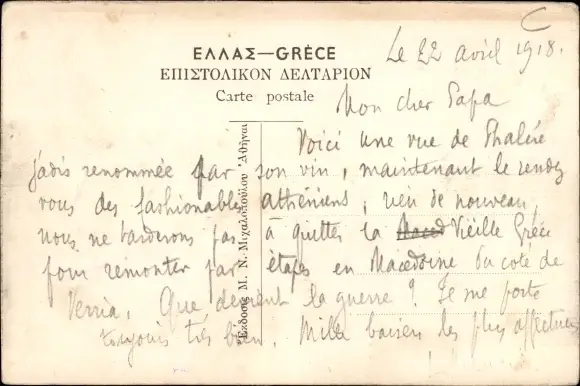 C
Le 22 avril 1918.
ΕΛΛΑΣ—GRÈCE
ΕΠΙΣΤΟΛΙΚΟΝ ΔΕΛΤΑΡΙΟΝ
Carte postale
Mon cher Papa
Voici une vue de Phalère
jadis renommée par son vin, maintenant le rendez
vous des fashionables athéniens, rien de nouveau,
nous ne tarderons pas à quitter la Maced Vieille Grèce
pour remonter par étapes en Macedoine du coté de
Verria. Que devient la guerre ? Je me porte
toujours très bien. Mille baisers les plus affectueux
Ἔκδοσις Μ. Ν. Μιχαλοπούλου Ἀθῆναι